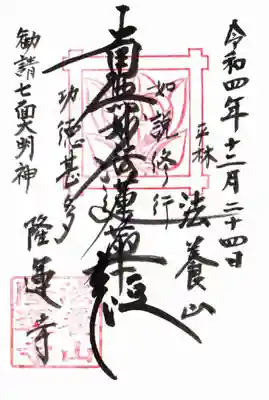 令和四年十二月二十四日
平林 法養山
如説修行
南無妙法蓮華経
功徳甚多
勧請七面大明神
隆運寺